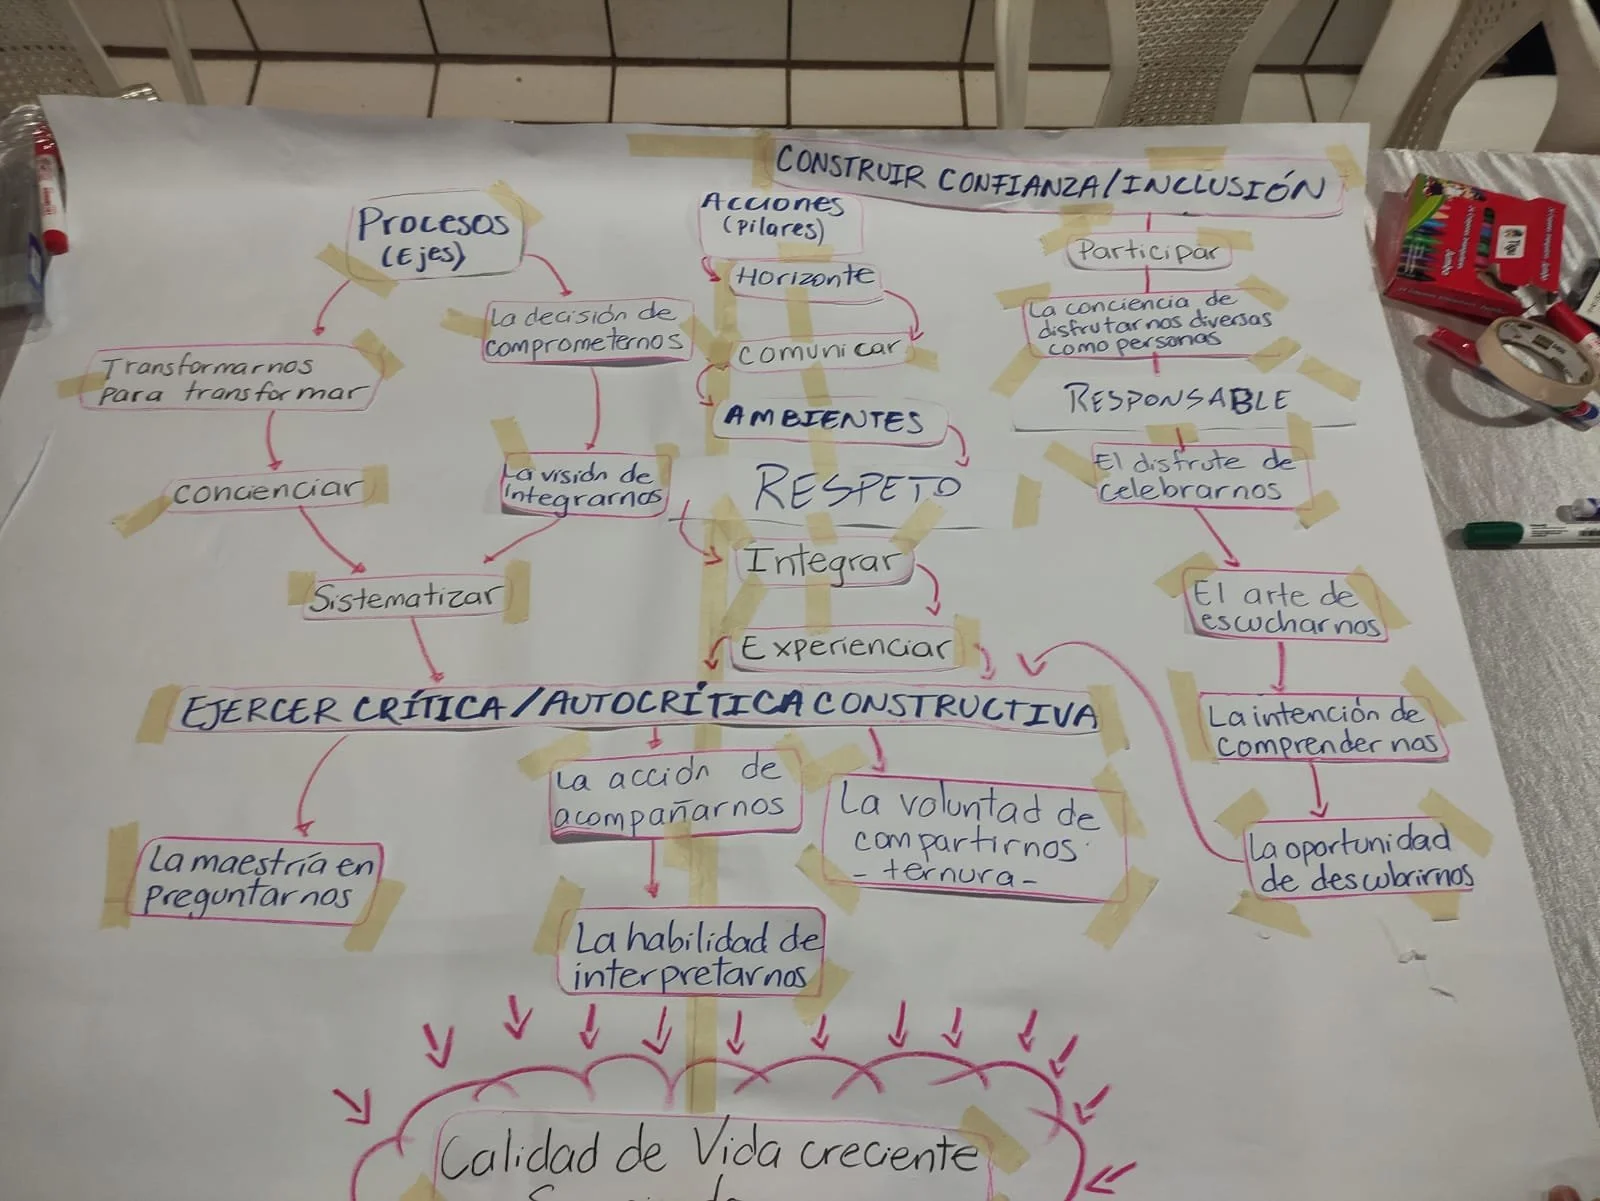 CONSTRUIR CONFIANZA/INCLUSIÓN
Procesos
(Ejes)
Transformarnos
para transformar
concienciar
La decisión de
comprometernos
La visión de
integrarnos
Sistematizar
Acciones
(Pilares)
Horizonte
comunicar
AMBIENTES
RESPETO
Integrar
Experienciar
Participar
La conciencia de
disfrutarnos diversas
como personas
RESPONSABLE
El disfrute de
celebrarnos
El arte de
escucharnos
La intención de
comprendernos
La oportunidad
de descubrirnos
EJERCER CRÍTICA/AUTOCRÍTICA CONSTRUCTIVA
La maestría en
preguntarnos
La acción de
acompañarnos
La habilidad de
interpretarnos
La voluntad de
compartirnos
- ternura -
Calidad de Vida creciente